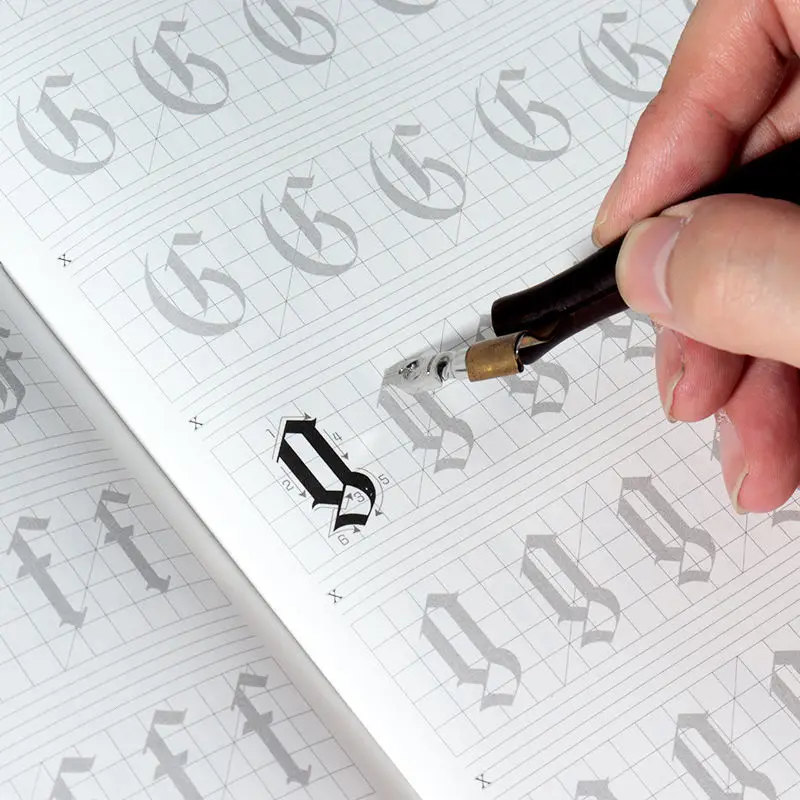 f f
f f f
G G G G
x G G G G G
x g 1 2 3 4 5 6 g g g
x g g g
x g g